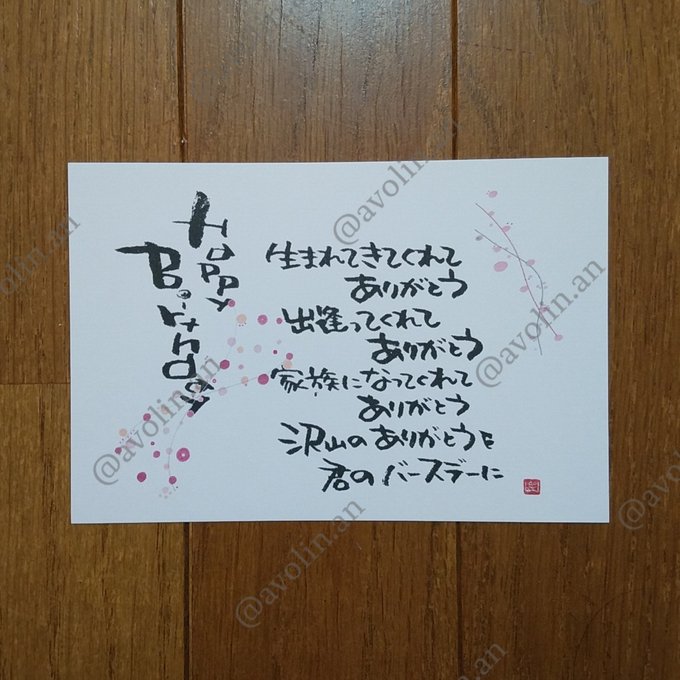 Happy
Birthday
生まれてきてくれて
ありがとう
出逢ってくれて
ありがとう
家族になってくれて
ありがとう
沢山のありがとうを
君のバースデーに
@avolin.an
@avolin.an
@avolin.an
@avolin.an
@avolin.an
olin.an
@avo
in.an